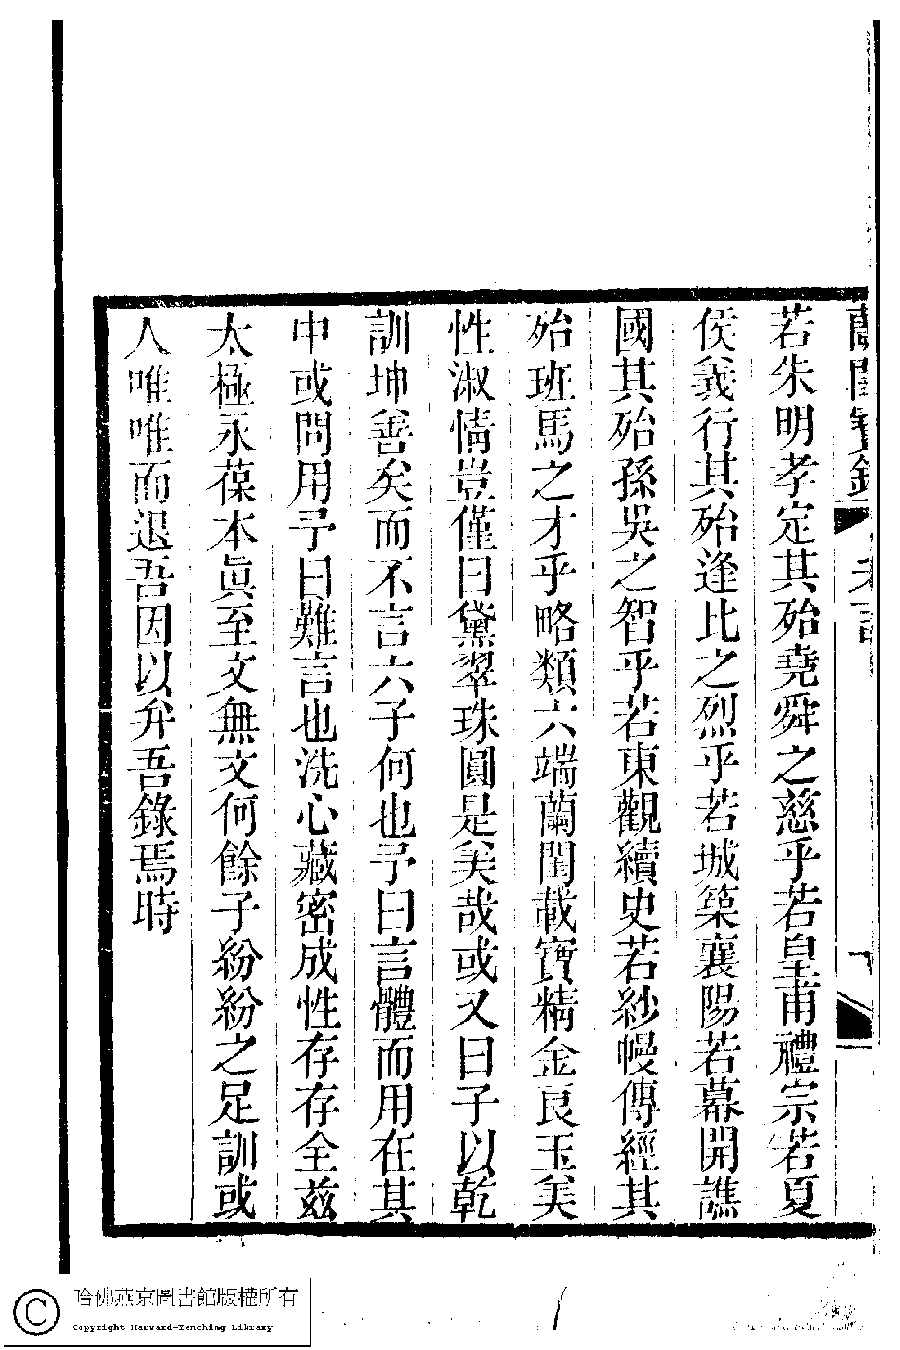 蘭閨寶錄
若朱明孝定其殆堯舜之慈乎若皇甫禮宗若夏
侯義行其殆逄比之烈乎若城築襄陽若幕開譙
國其殆孫吳之智乎若東觀續史若紗幔傳經其
殆班馬之才乎略類六端蘭閨載寶精金良玉矣
性淑情豈僅曰黛翠珠圓是矣哉或又曰子以乾
訓坤善矣而不言六子何也予曰言體而用在其
中或問用予曰難言也洗心藏密成性存存全兹
太極永葆本眞至文無文何餘子紛紛之足訓或
人唯唯而退吾因以弁吾錄焉時
哈佛燕京圖書館版權所有
Copyright Harvard-Yenching Library